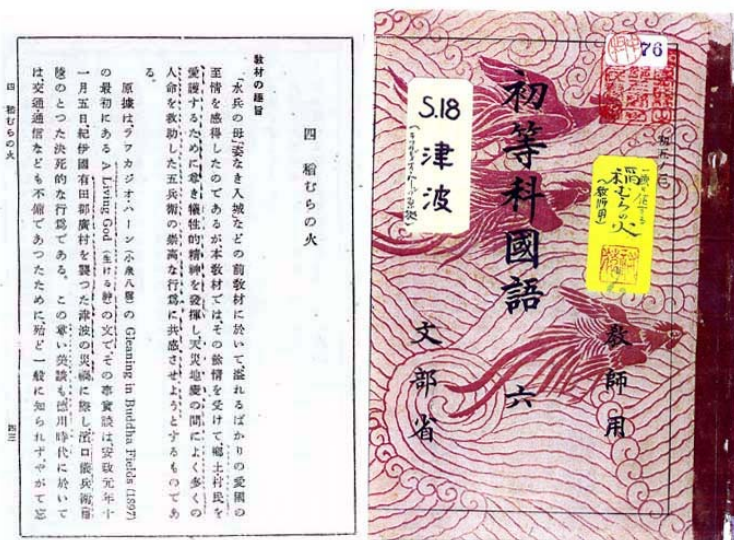 四 稻むらの火
教材の趣旨
「水兵の母」「姿なき入城」などの前教材に於いて溢れるばかりの愛國の
至情を感得したのであるが本教材ではその餘情を受けて郷土村民を
愛護するために尊き犠牲的精神を發揮し天災地變の間によく多くの
人命を救助した五兵衛の崇高な行爲に共感させようとするものであ
る。
原據は、ラフカジオ・ハーン(小泉八雲)の Gleaning in Buddha Fields (1897)
の最初にある A Living God (生ける神)の文でその事實談は、安政元年十
一月五日、紀伊國有田郡廣村を襲つた津波の災禍に際し濱口儀兵衛
陸のとつた決死的な行爲である。この尊い美談も徳川時代に於いて
は交通・通信なども不備であつたために殆ど一般に知られずやがて忘
四 稻むらの火
四三
76
初等科國語 六
教師用
文部省
S.18
津波
稻むらの火
(教師用)